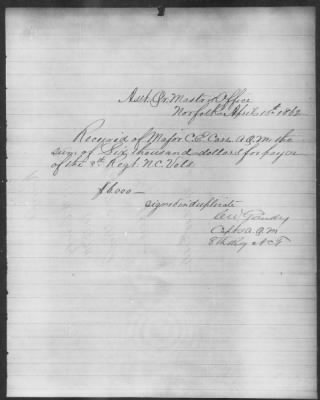 Asst. Qr. Master Office
Norfolk April 15th 1862
Received of Major C. E. Carr A.Q.M. the
sum of Six thousand dollars for pay &c
of the 8th Regt. N.C. Vols.
$6000 —
signed in duplicate
Gandy
Capt & A.Q.M
8th Reg N.C.T